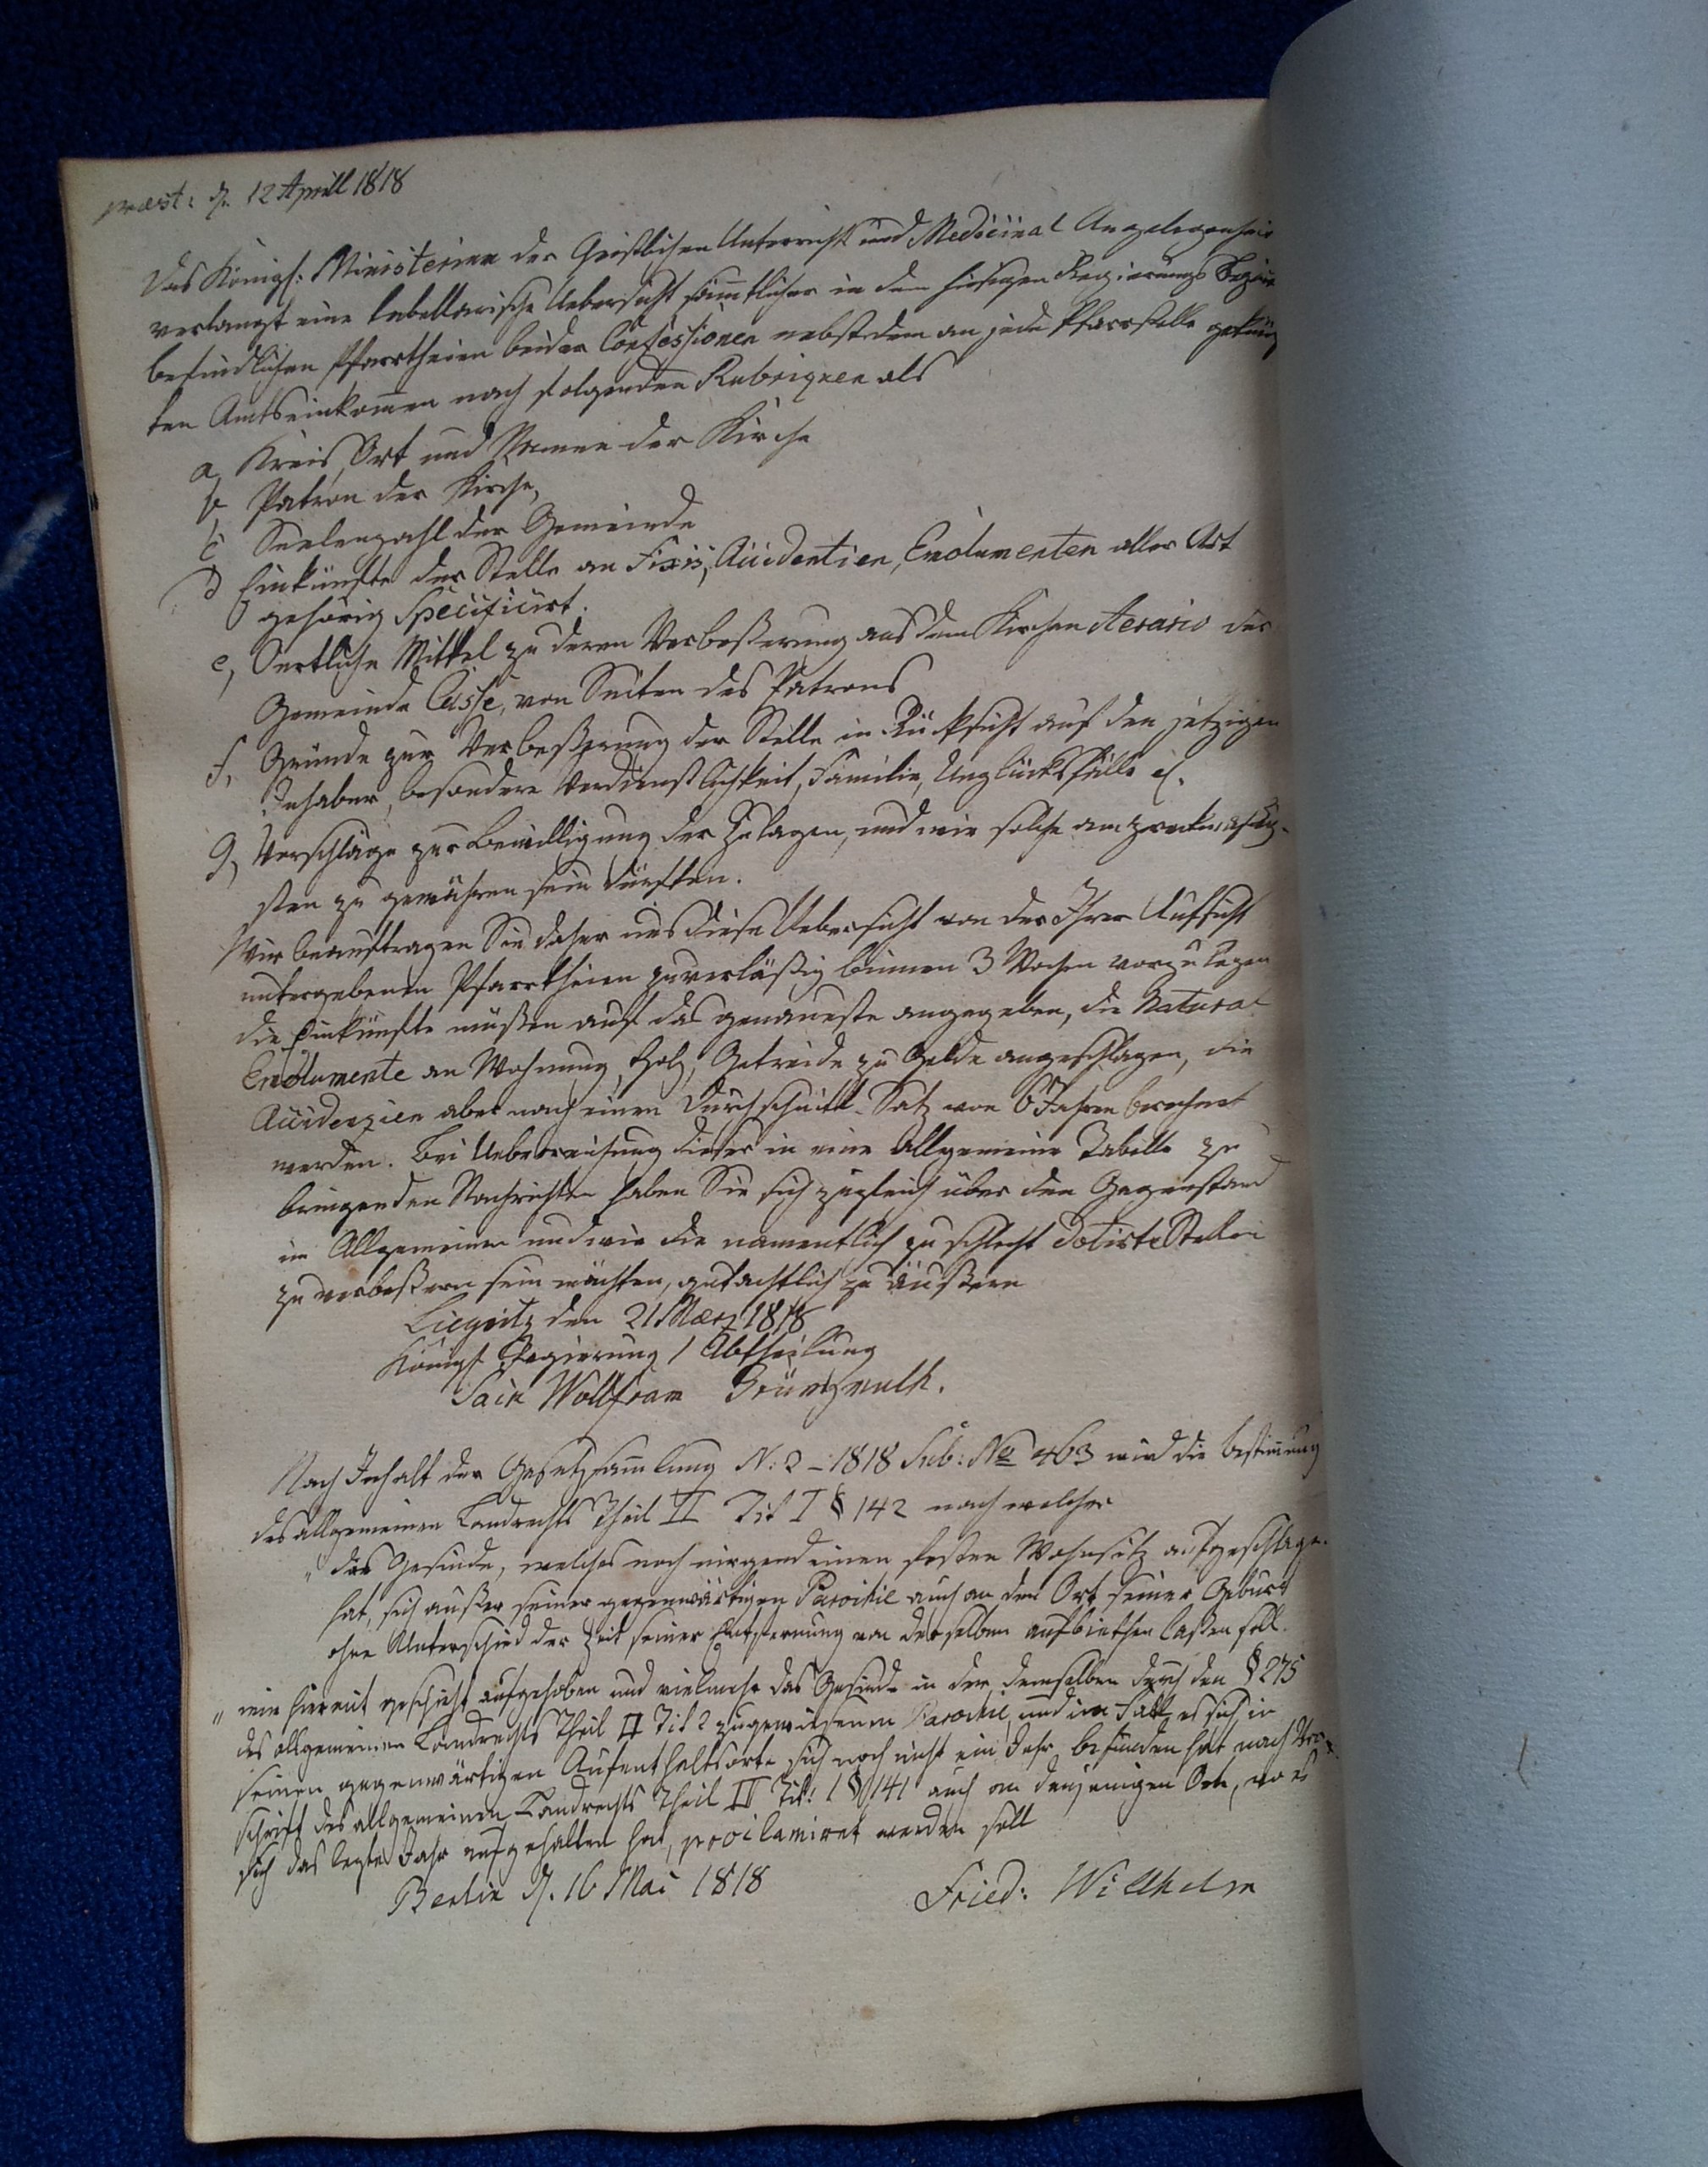 praest: d. 12 Aprill 1818
Das Königl: Ministerium der Geistlichen Unterricht und Medicinal Angelegenheit
verlangt eine tabellarische Uebersicht sämtlicher in dem hiesigen Regierungs Bezirk
befindlichen Pfarrtheien beider Confessionen nebst dem an jede Pfarrstelle geknüpf
ten Amtseinkomen nach folgenden Rubriquen als
a, Kreis, Ort und Namen der Kirche
b Patron der Kirche,
c Seelenzahl der Gemeinde
d Einkünfte der Stelle an Fixis, Accidentien, Emolumenten aller Art
gehörig Specificirt.
e, Oertliche Mittel zu deren Verbeßerung aus dem Kirchen Aerario der
Gemeinde Casse, von Seiten des Patrons
f, Gründe zur Verbeßerung der Stelle in Rücksicht auf den jetzigen
Inhaber, besondere Verdienstlichkeit, Familie, Unglücksfälle
g, Vorschläge zur Bewilligung der Zulagen, und wie solche am zweckmäßig-
sten zu gewähren sein dürften.
Wir beauftragen Sie daher uns diese Uebersicht von der Ihrer Aufsicht
untergebenen Pfarrtheien zuverläßig binnen 3 Wochen vorzulegen
die Einkünfte müßen auf das genaueste angegeben, die Natural
Emolumente an Wohnung, Holz, Getreide zu Gelde angeschlagen, die
Accidenzien aber nach einen Durchschnitt-Satz von 6 Jahren berechnet
werden. Bei Ueberreichung dieser in eine Allgemeine Tabelle zu
bringenden Nachrichten haben Sie sich zugleich über den Gegenstand
im Allgemeinen und wie die namentlich zu schlecht dotirte Stellen
zu verbeßern sein möchten, gutachtlich zu äußern
Liegnitz den 21 Merz 1818
Königl. Regierung 1 Abtheilung
Wollfram
Nach Inhalt der Gesetzsamlung N: 2 - 1818 Sub: No 463 wird die Bestimung
des allgemeinen Landrechts Theil II Tit I § 142 nach welcher
„das Gesinde, welches noch nirgend einen festen Wohnsitz aufgeschlagen
hat, sich außer seiner gegenwärtigen Parochie auch an dem Ort seiner Geburt
ohne Unterschied der Zeit seiner Entfernung von derselben aufbiethen laßen soll.
„wie hiermit geschieht aufgehoben und vielmehr das Gesinde in der demselben durch den § 275
des allgemeinen Landrechts Theil II Tit 2 zugewiesenen Parochie, und im Fall es sich in
seinen gegenwärtigen Aufenthaltsorte sich noch nicht ein Jahr befunden hat nach Vor
schrift des allgemeinen Landrechts Theil II Tit: 1 § 141 auch an denjenigen Orte, wo es
sich das letzte Jahr aufgehalten hat, proclamiret werden soll
Berlin d. 16 Mai 1818 Fried: Willhelm